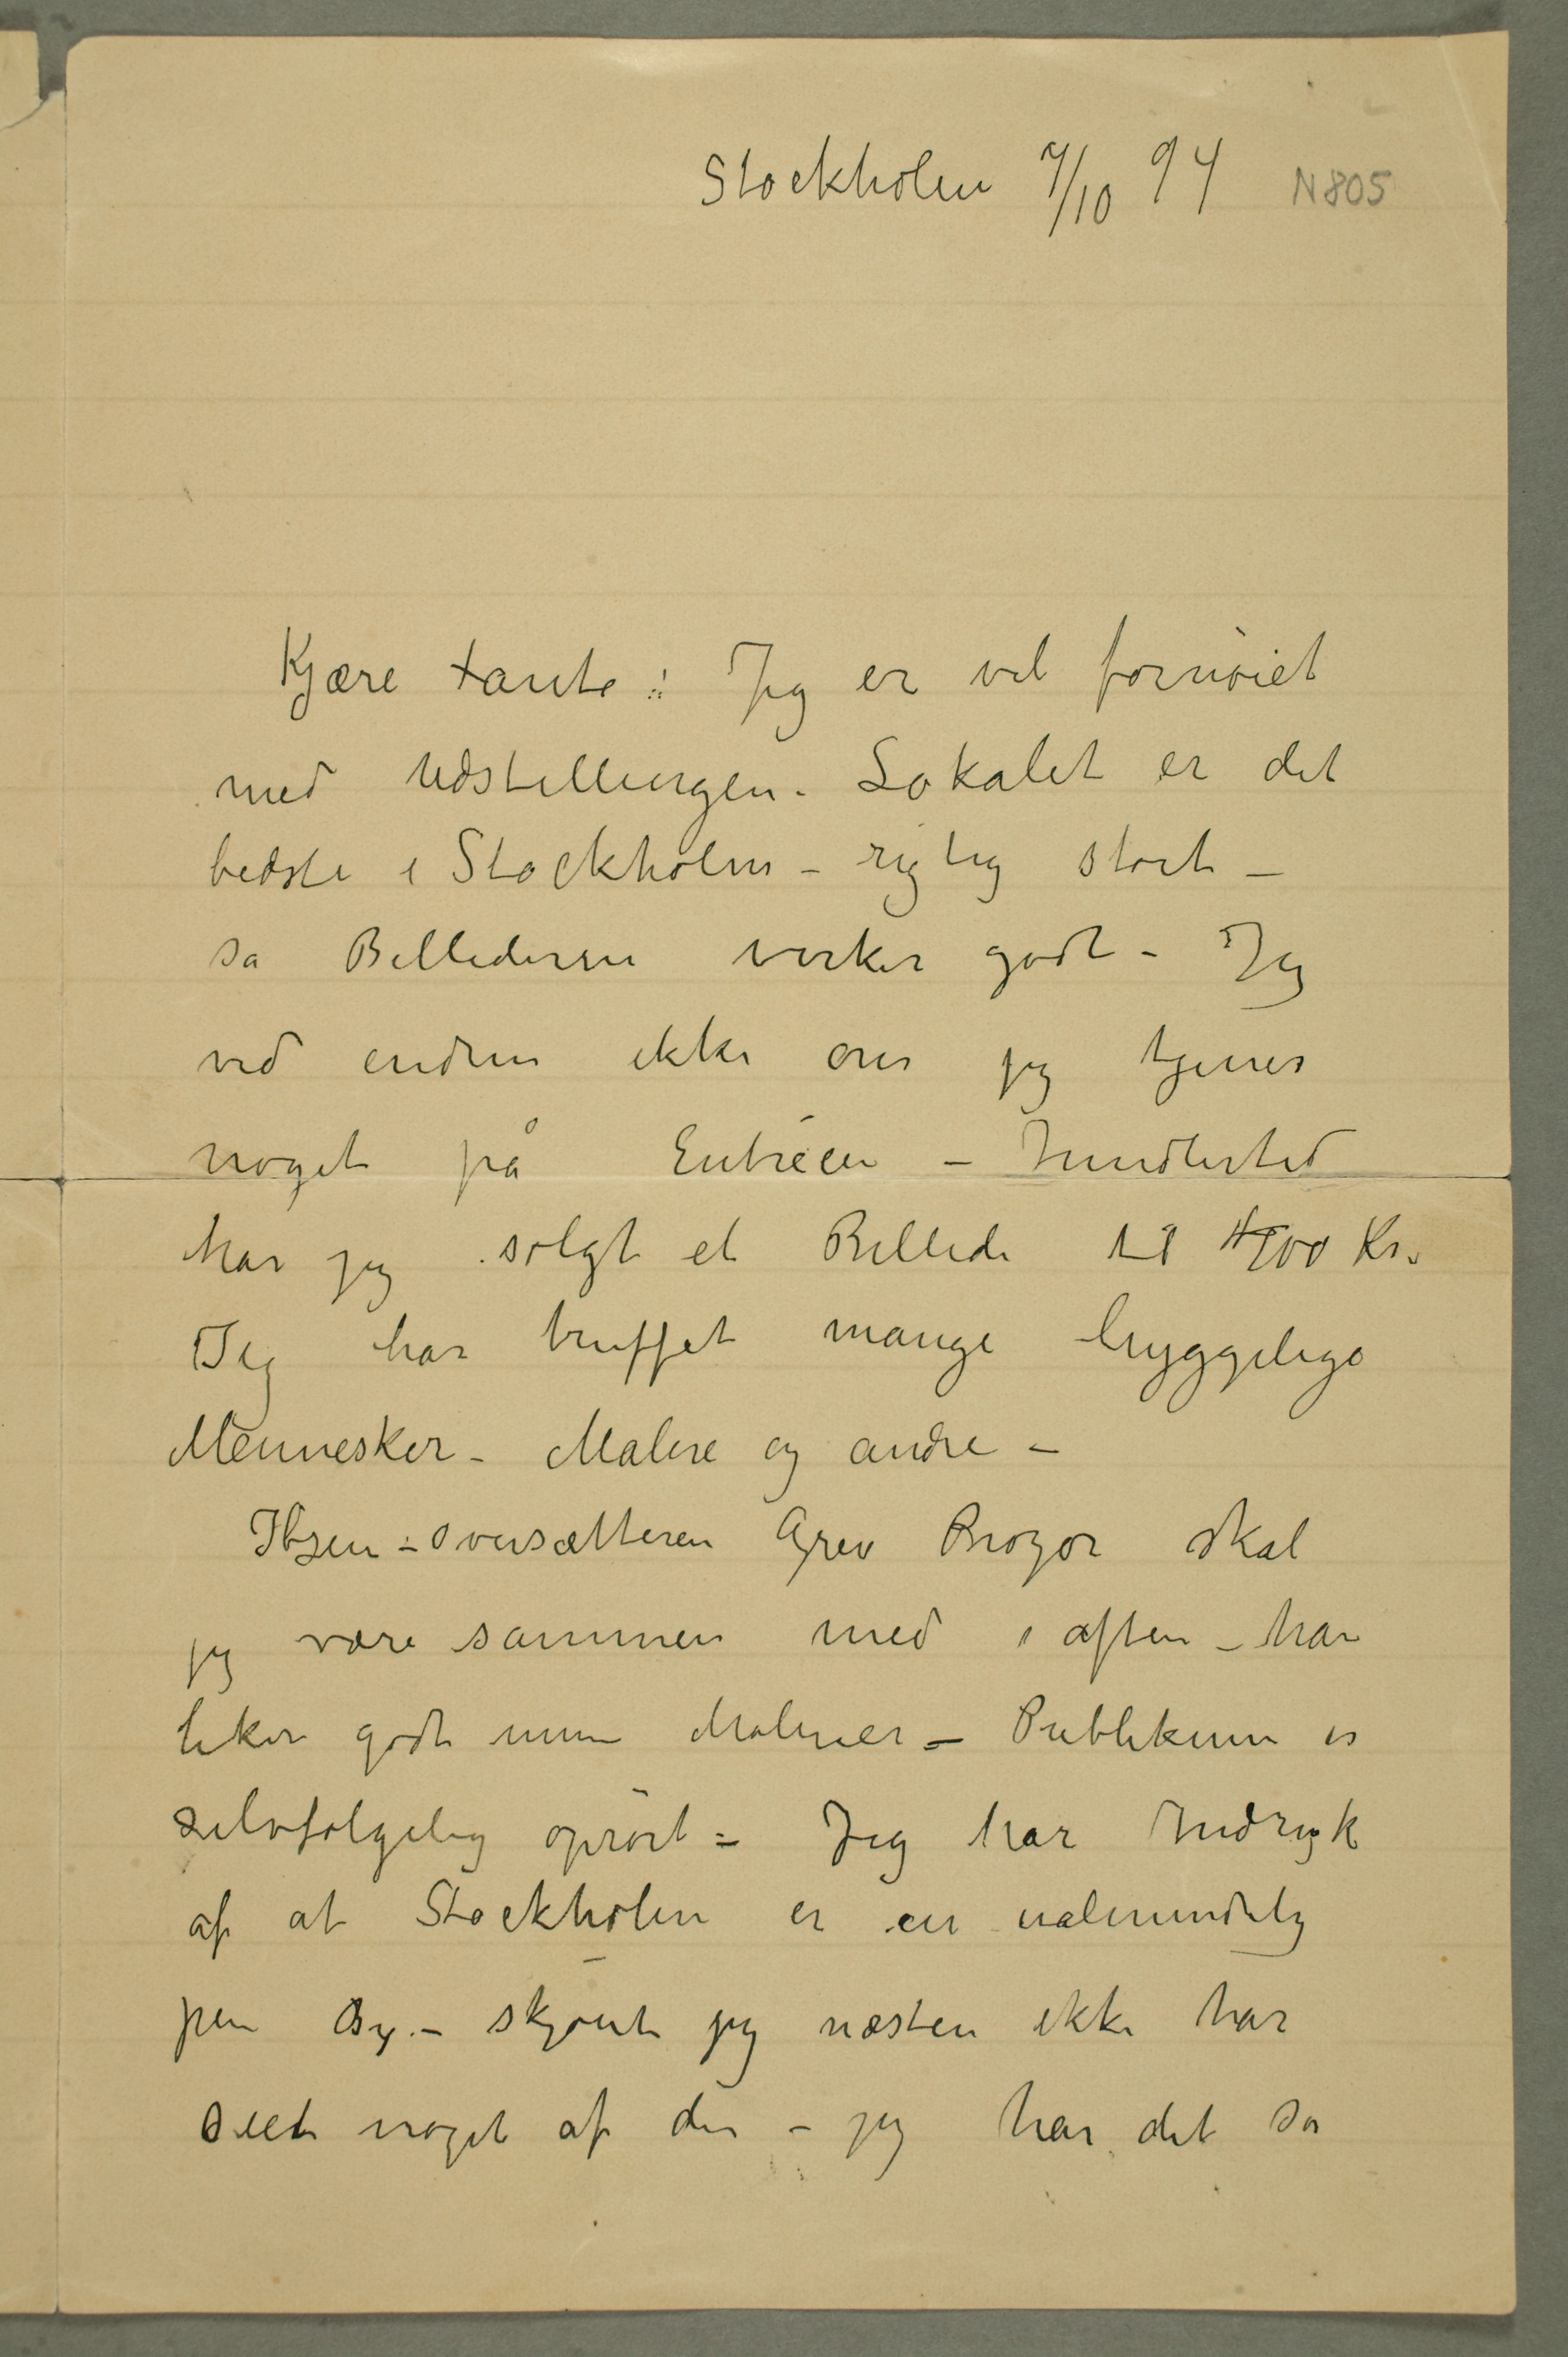 Stockholm 7/10 94 N 805
Kjære tante! Jeg er vel fornøiet
med Udstillingen. Lokalet er det
bedste i Stockholm – rigtig stort –
sa Billederne virker godt – Jeg
ved endnu ikke om jeg tjener
noget på Entréen – Imidlertid
har jeg solgt et Billede til 400 Kr.
Jeg har truffet mange hyggelige
Mennesker – Malere og andre –
Ibsen-oversætteren Grev Prozor skal
jeg være sammen med i aften – han
liker godt mine Malerier – Publikum er
selvfølgelig oprørt – Jeg har Indryk
af at Stockholm er en ualmindelig
pen By – skjønt jeg næsten ikke har
seet noget af den – jeg har det sa